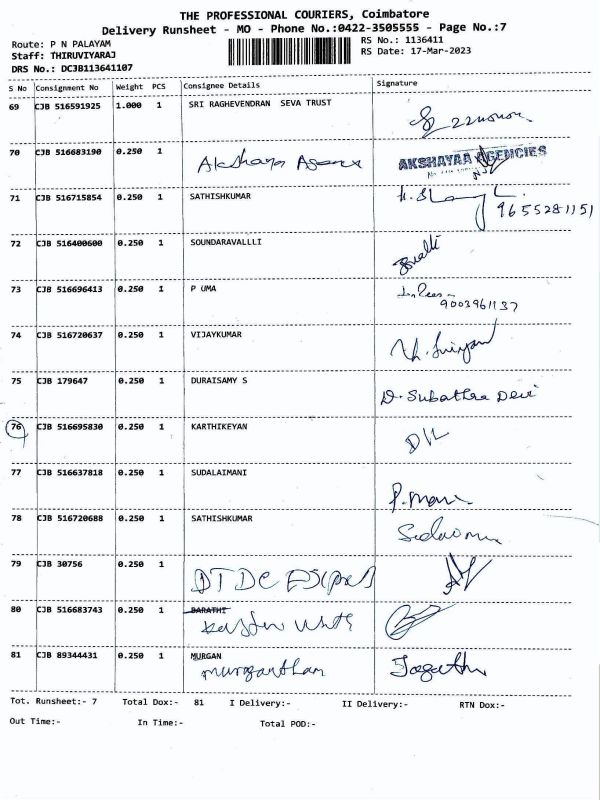 THE PROFESSIONAL COURIERS, Coimbatore
Delivery Runsheet - MO - Phone No.:0422-3505555 - Page No.:7
Route: P N PALAYAM RS No.: 1136411
Staff: THIRUVIYARAJ RS Date: 17-Mar-2023
DRS No.: DCJB113641107
S No Consignment No Weight PCS Consignee Details Signature
69 CJB 516591925 1.000 1 SRI RAGHEVENDRAN SEVA TRUST
70 CJB 516683190 0.250 1 Akshaya Agence AKSHAYAA AGENCIES
71 CJB 516715854 0.250 1 SATHISHKUMAR
9655281151
72 CJB 516400600 0.250 1 SOUNDARAVALLLI
73 CJB 516696413 0.250 1 P UMA
9003961137
74 CJB 516720637 0.250 1 VIJAYKUMAR
75 CJB 179647 0.250 1 DURAISAMY S
D. Subathra Devi
76 CJB 516695830 0.250 1 KARTHIKEYAN
77 CJB 516637818 0.250 1 SUDALAIMANI
P. Mani
78 CJB 516720688 0.250 1 SATHISHKUMAR
79 CJB 30756 0.250 1
DTDC
80 CJB 516683743 0.250 1 BARATHI
81 CJB 89344431 0.250 1 MURGAN
murganathan Jagathi
Tot. Runsheet:- 7 Total Dox:- 81 I Delivery:- II Delivery:- RTN Dox:-
Out Time:- In Time:- Total POD:-